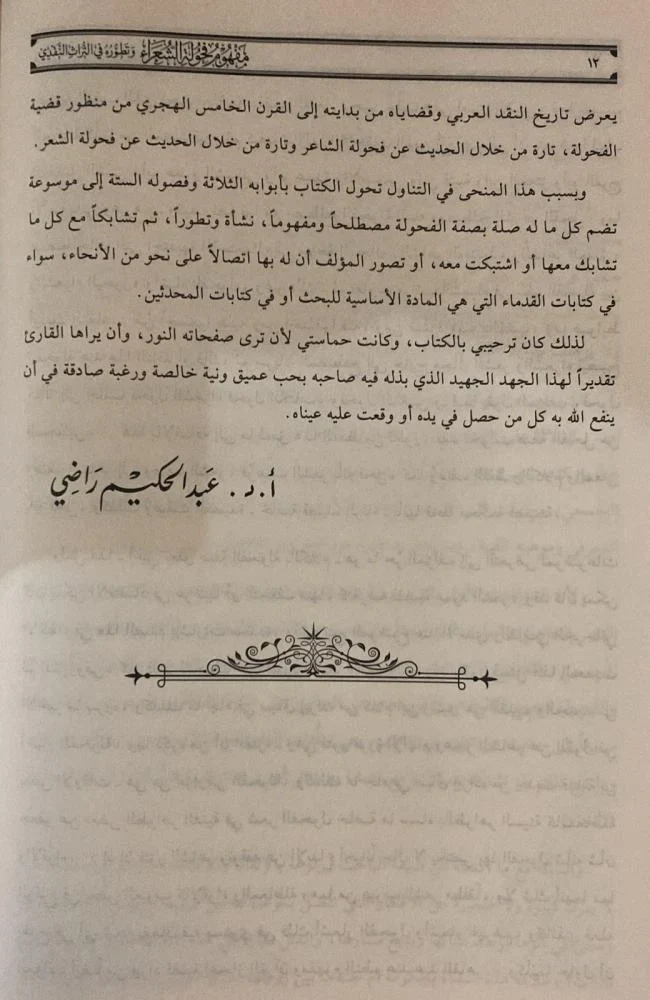 ١٢
مفهوم فحولة الشعراء وتطوره في التراث النقدي
يعرض تاريخ النقد العربي وقضاياه من بدايته إلى القرن الخامس الهجري من منظور قضية
الفحولة، تارة من خلال الحديث عن فحولة الشاعر وتارة من خلال الحديث عن فحولة الشعر.
وبسبب هذا المنحى في التناول تحول الكتاب بأبوابه الثلاثة وفصوله الستة إلى موسوعة
تضم كل ما له صلة بصفة الفحولة مصطلحاً ومفهوماً، نشأة وتطوراً، ثم تشابكاً مع كل ما
تشابك معها أو اشتبكت معه، أو تصور المؤلف أن له بها اتصالاً على نحو من الأنحاء، سواء
في كتابات القدماء التي هي المادة الأساسية للبحث أو في كتابات المحدثين.
لذلك كان ترحيبي بالكتاب، وكانت حماستي لأن ترى صفحاته النور، وأن يراها القارئ
تقديراً لهذا الجهد الجهيد الذي بذله فيه صاحبه بحب عميق ونية خالصة ورغبة صادقة في أن
ينفع الله به كل من حصل في يده أو وقعت عليه عيناه.
أ.د. عَبدالحكيْم رَاضِي